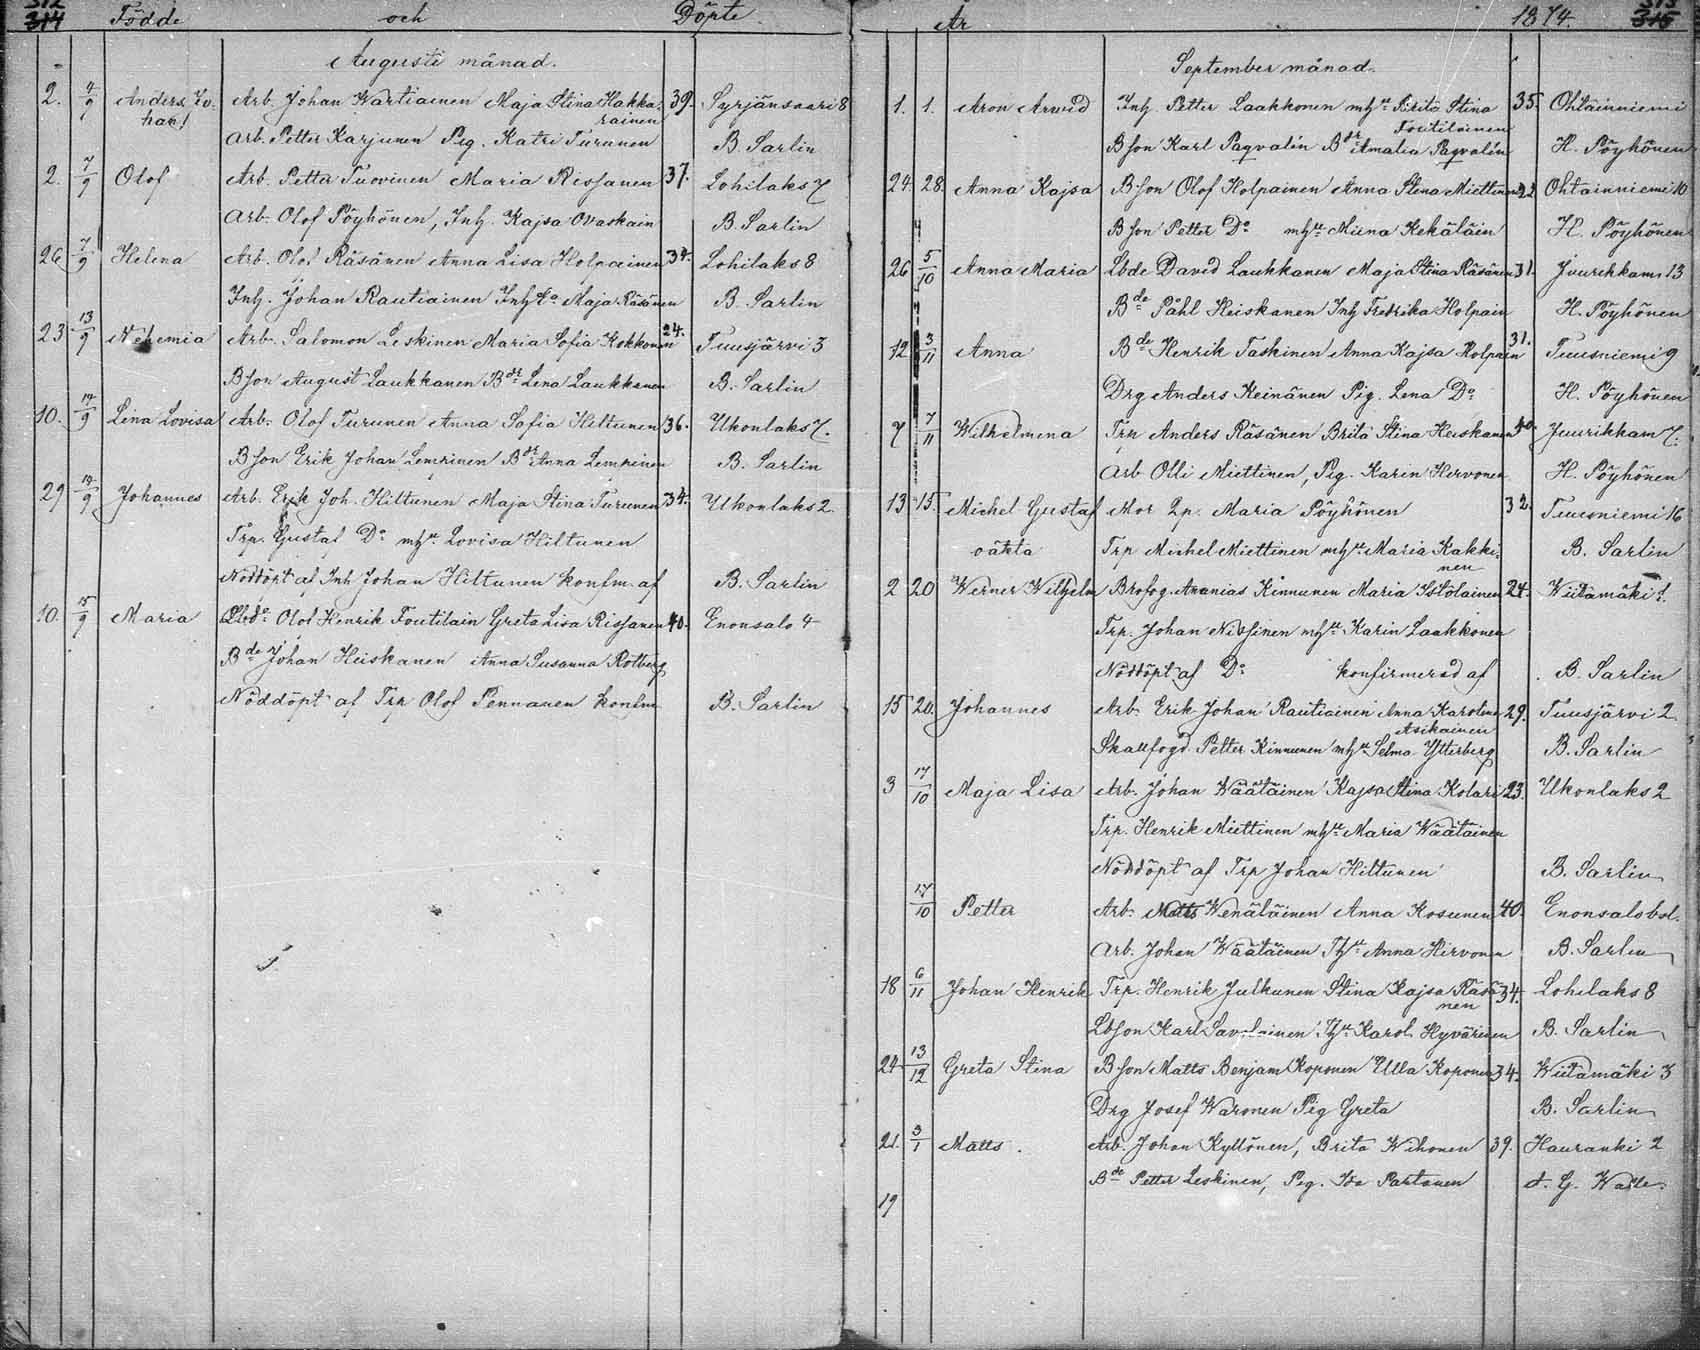 312
314 Födde och Döpte
Augusti månad.
2. 4/9 Anders Jo- Arb. Johan Wartiainen Maja Stina Hakka- 39. Syrjänsaari 8
han rainen
Arb. Petter Karjunen Pig. Katri Turunen B. Sarlin
2. 7/9 Olof Arb. Petter Tuovinen Maria Rissanen 37. Lohilaks 7
Arb. Olof Pöyhönen, Inh. Kajsa Ovaskain B. Sarlin
26 7/9 Helena Arb. Olof Räsänen Anna Lisa Holpainen 34. Lohilaks 8
Inh. Johan Rautiainen Inh Maja Räsänen B. Sarlin
23 13/9 Nehemia Arb. Salomon Leskinen Maria Sofia Kokkonen 24. Tuusjärvi 3
Bson August Laukkanen Bdr Lena Laukkanen B. Sarlin
10. 14/9 Lina Lovisa Arb. Olof Turunen Anna Sofia Hiltunen 36. Ukonlaks 7.
Bson Erik Johan Lempinen Bdr Anna Lempinen B. Sarlin
29 14/9 Johannes Arb. Erik Joh. Hiltunen Maja Stina Turunen 34. Ukonlaks 2
Trp. Gustaf Do mhu Lovisa Hiltunen
Nöddöpt af Inh Johan Hiltunen konfm. af B. Sarlin
10. 15/9 Maria Olof Henrik Foutilain Greta Lisa Rissanen 40. Enonsalo 4
Bde Johan Heiskanen Anna Susanna Rotberg
Nöddöpt af Trp Olof Pennanen konfm B. Sarlin
År 1874. 313
315
September månad.
1. 1. Aron Arwid Inh. Petter Laakkonen mhu Brita Stina 35. Ohtainniemi
Foutilainen
Bson Karl Paqvalin Bdr Amalia Paqvalin H. Pöyhönen
24. 28. Anna Kajsa Bson Olof Holpainen Anna Stina Miettinen 22 Ohtainniemi 10
Bson Petter Do mhu Miina Kekäläin H. Pöyhönen
26 5/10 Anna Maria Lbde David Laukkanen Maja Stina Räsänen 31. Juurikkam 13
Bde Påhl Heiskanen Inh Fredrika Holpain H. Pöyhönen
12 3/11 Anna Bde Henrik Taskinen Anna Kajsa Holpain 31. Tuusniemi 9
Drg Anders Keinänen Pig. Lena Do H. Pöyhönen
7 7/11 Wilhelmina Trp Anders Räsänen Brita Stina Heiskanen 40. Juurikkam 7.
Arb Olli Miettinen, Pig. Karin Hirvonen H. Pöyhönen
13 15. Michel Gustaf Mor Lp. Maria Pöyhönen 32. Tuusniemi 16
oäkta Trp Michel Miettinen mhu Maria Kakki- B. Sarlin
nen
2 20 Werner Wilhelm Brofog. Ananias Kinnunen Maria Issölainen 24. Wiitamäki 1.
Trp. Johan Nissinen mhu Karin Laakkonen
Nöddöpt af Do konfirmerad af B. Sarlin
15 20. Johannes Arb. Erik Johan Rautiainen Anna Karolina 29. Tuusjärvi 2
Asikainen
Skallfogd Petter Kinnunen mhu Selma Ytterberg B. Sarlin
3 17/10 Maja Lisa Arb. Johan Wäätäinen Kajsa Stina Kolari 23. Ukonlaks 2
Trp. Henrik Miettinen mhu Maria Wäätäinen
Nöddöpt af Trp Johan Hiltunen B. Sarlin
17/10 Petter Arb. Matts Wenäläinen Anna Kosunen 40. Enonsalo bol.
Arb. Johan Wäätäinen Hu Anna Hirvonen B. Sarlin
18 6/11 Johan Henrik Trp. Henrik Julkunen Stina Kajsa Räsä- 34. Lohilaks 8
nen
Lbson Karl Savolainen Hu Karol. Hyvärinen B. Sarlin
24 13/12 Greta Stina Bson Matts Benjam Koponen Ulla Koponen 34. Wiitamäki 3
Drg Josef Waronen Pig Greta B. Sarlin
21. 3/1 Matts. Arb. Johan Kyllönen, Brita Wihonen 39. Hauranki 2
Bde Petter Leskinen, Pig. Ida Partanen
19